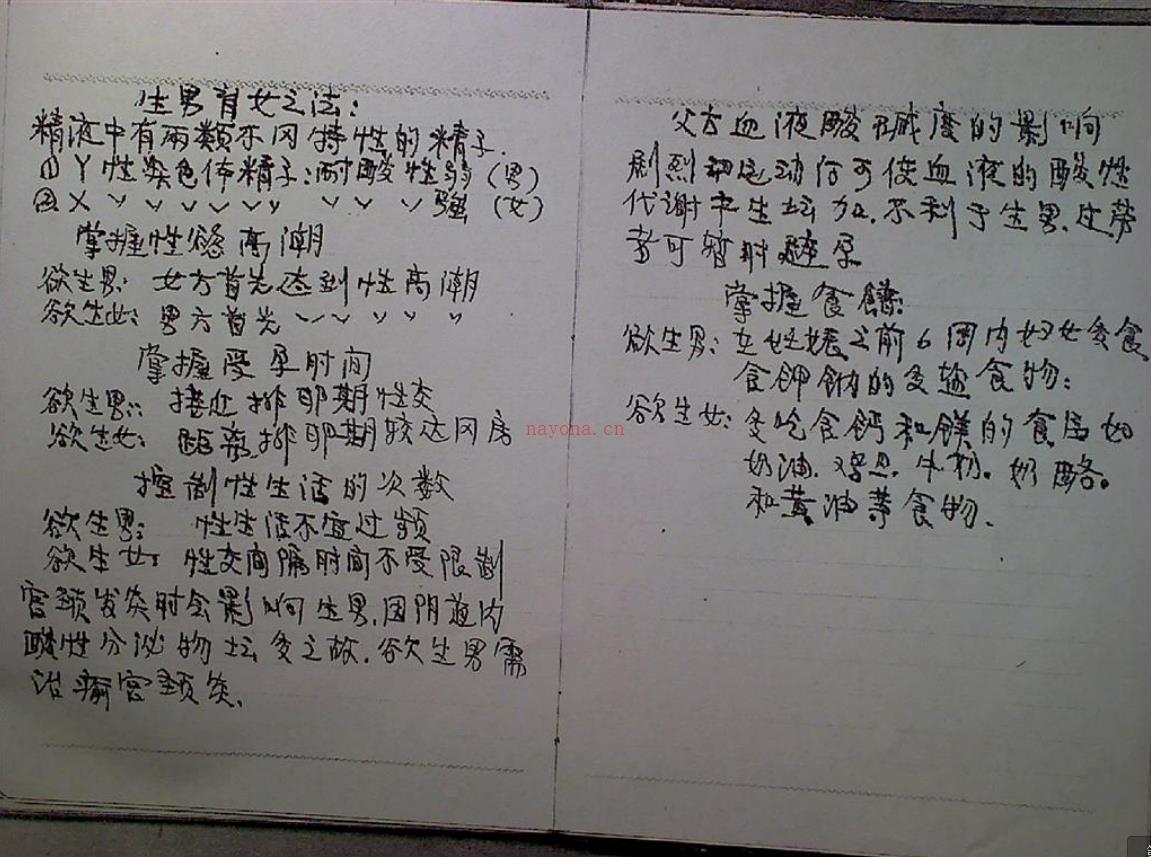 生男育女之法:
精液中有两类不同特性的精子.
① Y性染色体精子:耐酸性弱(男)
② X 〃 〃 〃 〃 〃 〃 〃 〃 〃 强 (女)
掌握性慾高潮
欲生男: 女方首先达到性高潮
欲生女: 男方首先 〃 〃 〃 〃 〃
掌握受孕时间
欲生男: 接近排卵期性交
欲生女: 距离排卵期较远同房
控制性生活的次数
欲生男: 性生活不宜过频
欲生女: 性交间隔时间不受限制
宫颈发炎时会影响生男.因阴道内
酸性分泌物坛多之故.欲生男需
治癒宫颈炎.
父方血液酸碱度的影响
剧烈运动后可使血液的酸性
代谢产生坛加.不利于生男.
者可暂时避孕
掌握食饍:
欲生男: 在妊娠之前6周内妇女多食
含钾鈉的食物:
欲生女: 多吃含钙和镁的食品如
奶油. 牛奶。奶酪。
和黄油等食物.
nayona.cn